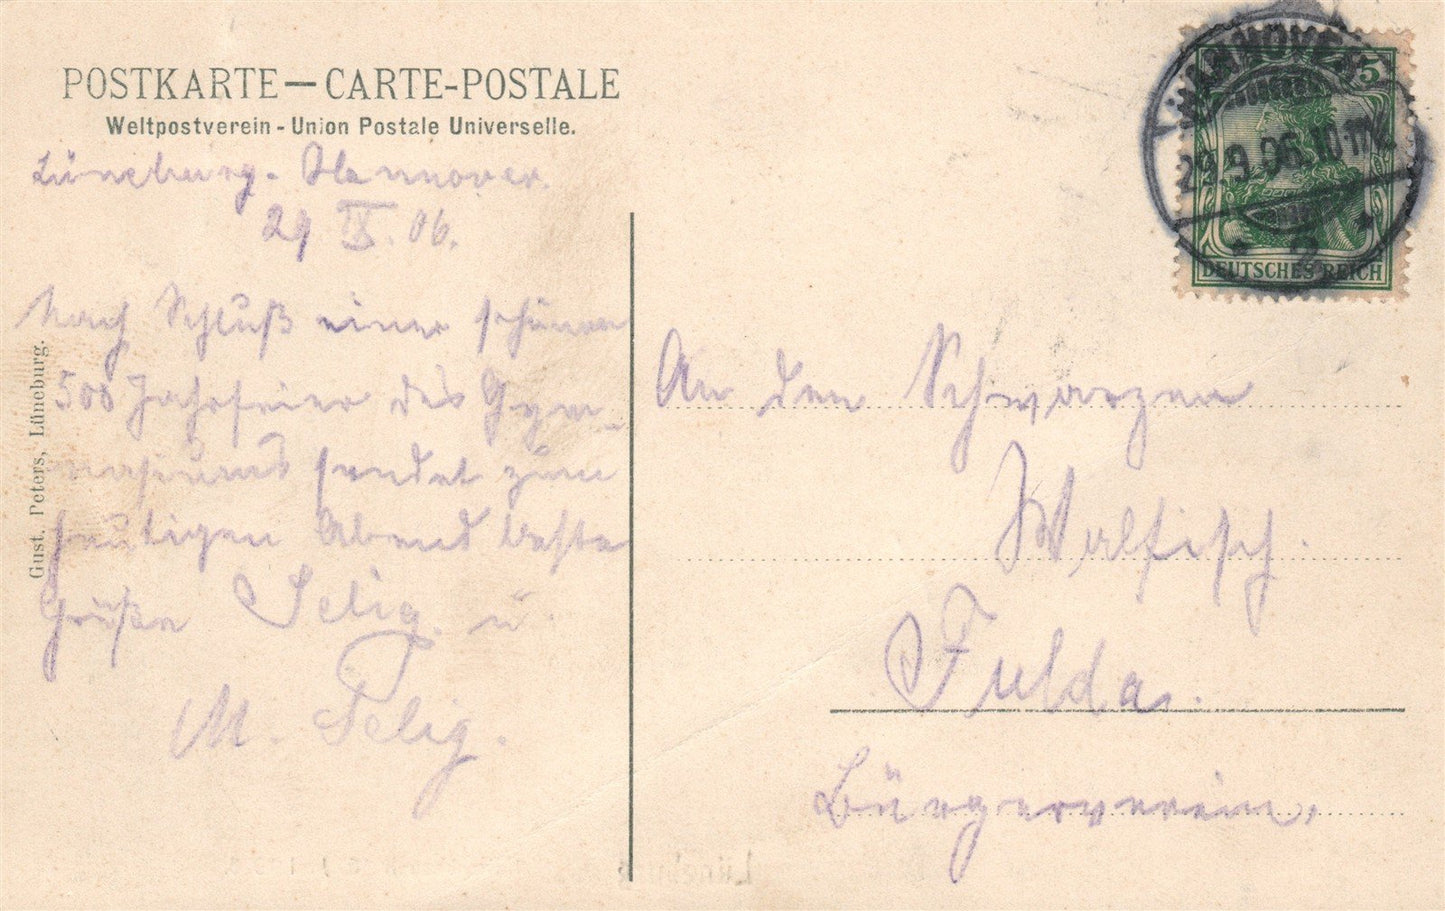 POSTKARTE — CARTE-POSTALE
Weltpostverein - Union Postale Universelle.
Lüneburg - Hannover.
29 IX. 06.
Nach Schluß einer schönen
500 Jahrfeier des Gym-
nasiums sendet zum
heutigen Abend beste
Grüße Selig u
M. Selig.
Gust. Peters, Lüneburg.
HANNOVER
29.9.06.10-11V.
* 2 *
5
DEUTSCHES REICH
An den Schwarzen
Walfisch.
Fulda.
Bürgerverein.